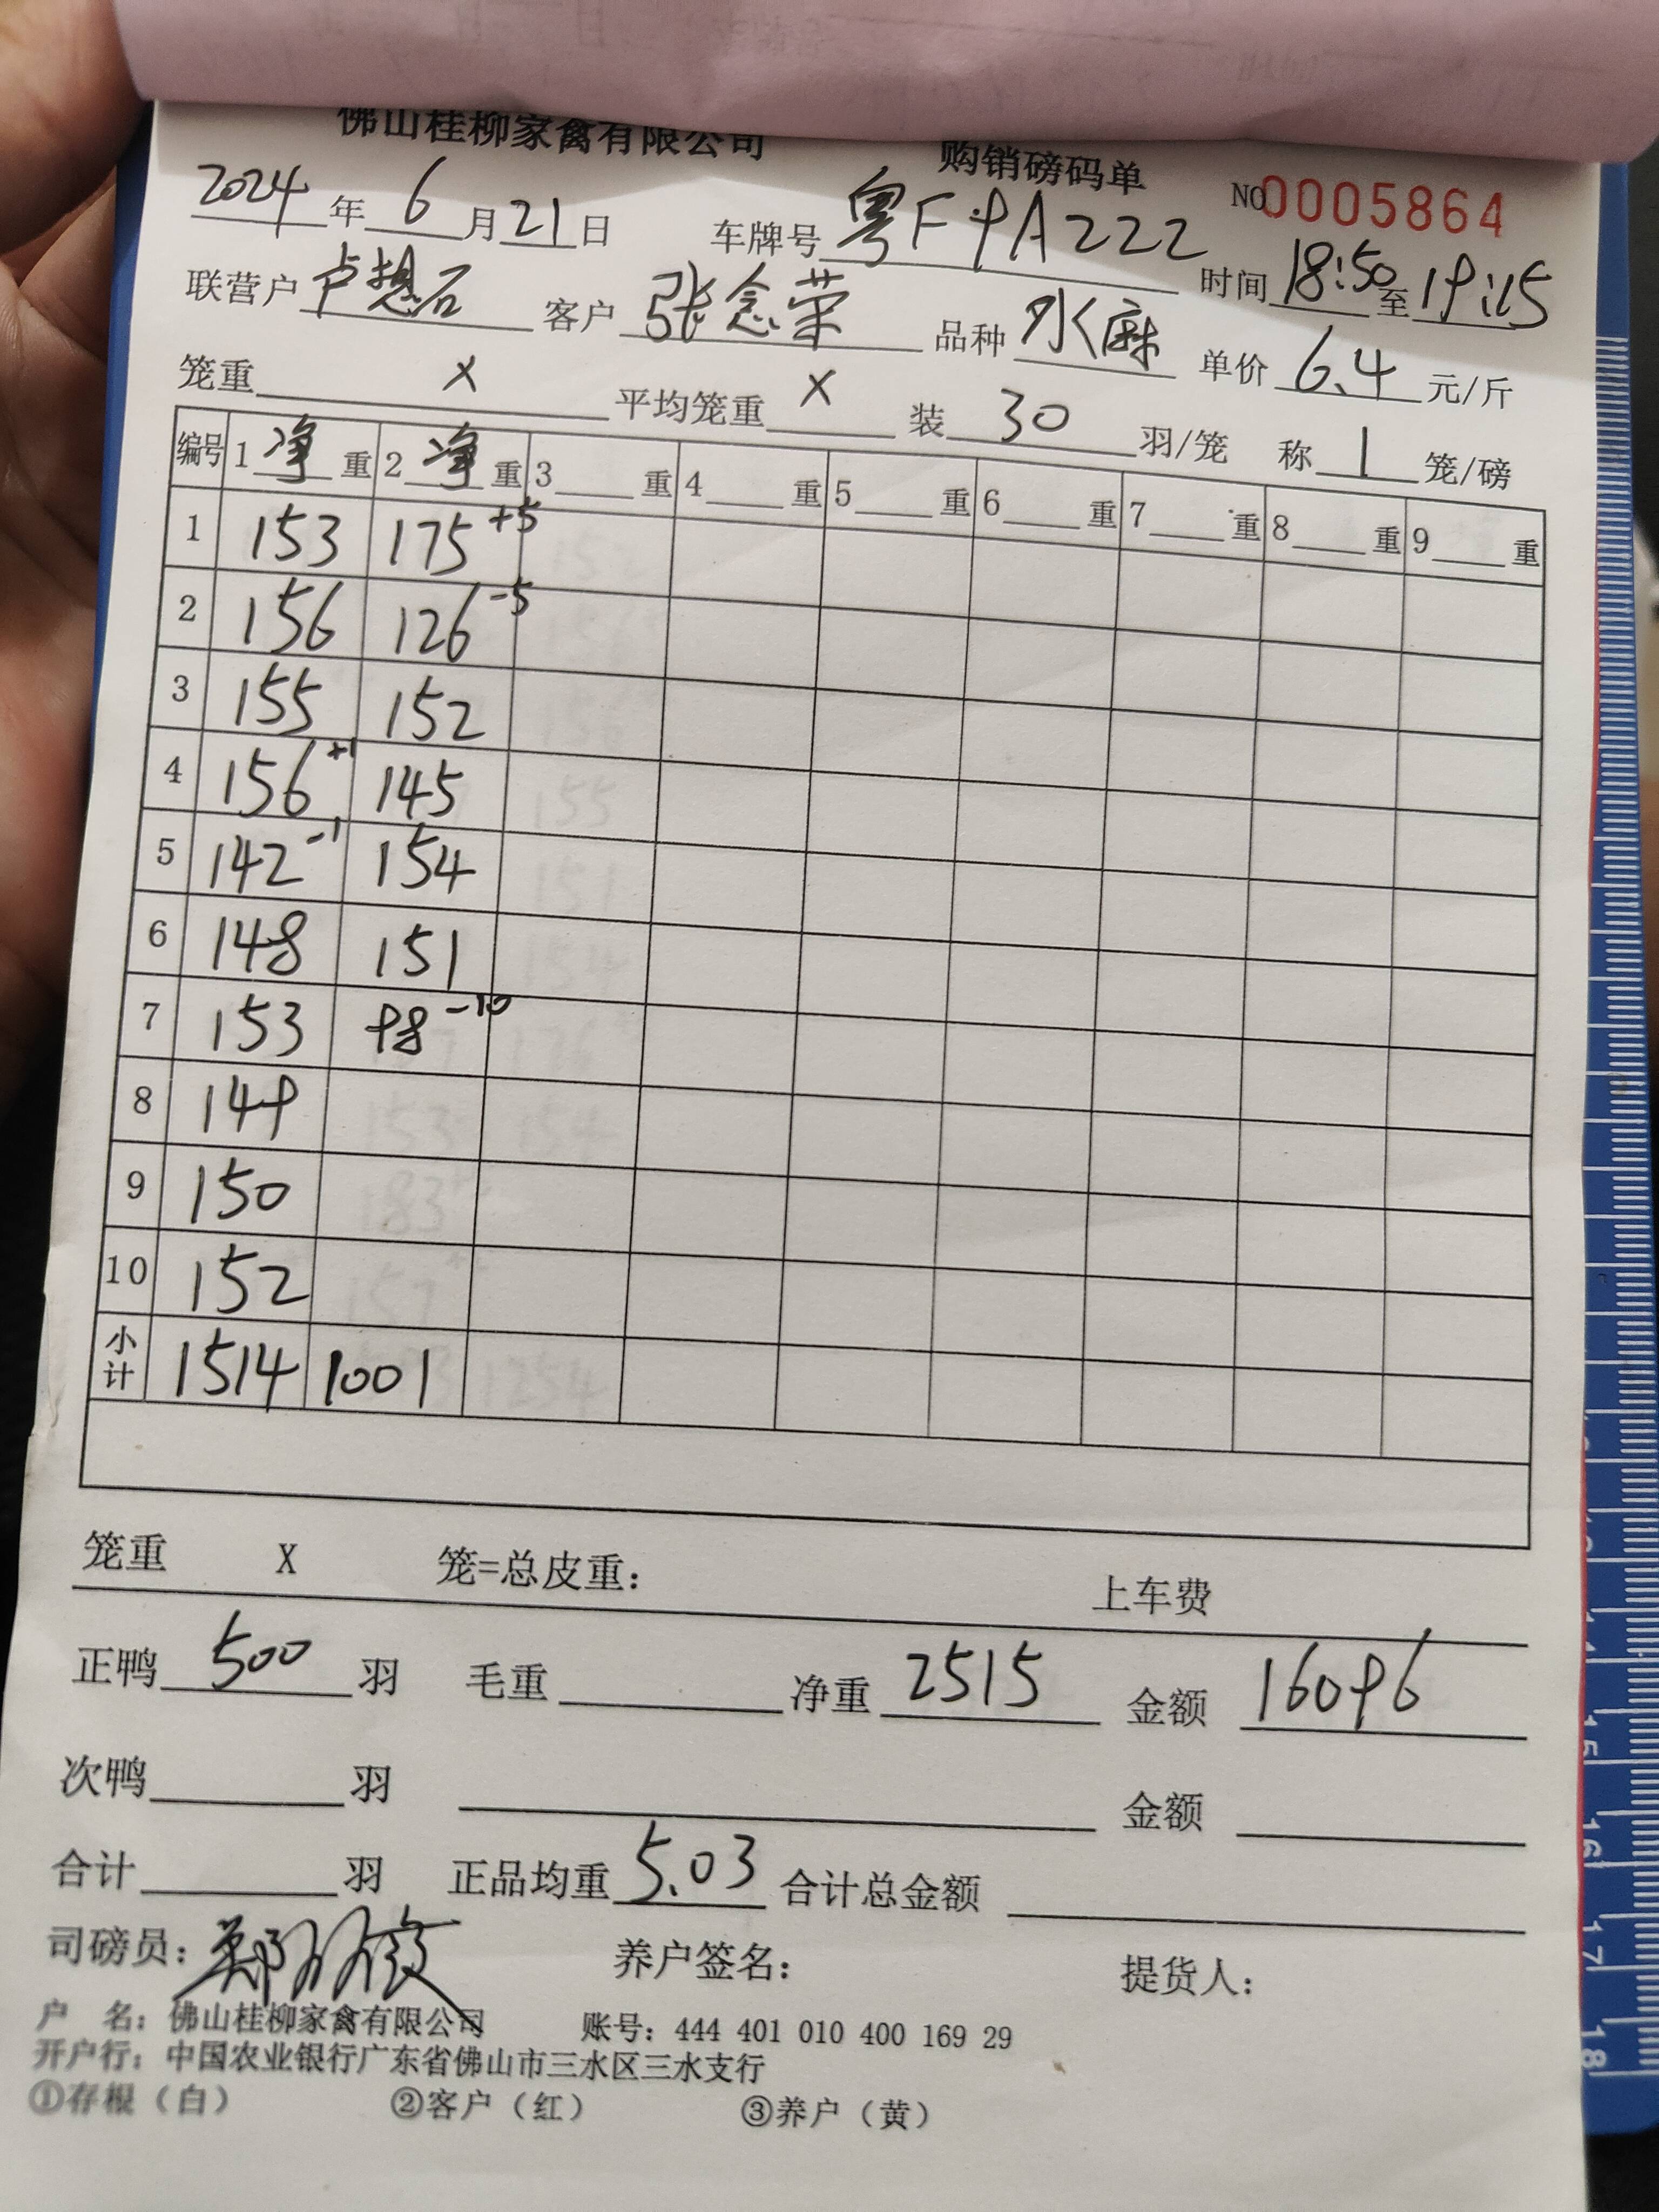 佛山桂柳家禽有限公司 购销磅码单
NO 0005864
2024年6月21日 车牌号 粤F9A222 时间 18:50至19:15
联营户 卢想石 客户 张念荣 品种 水麻 单价 6.4 元/斤
笼重 x 平均笼重 x 装 30 羽/笼 称 1 笼/磅
编号 1 净 重 2 净 重 3 重 4 重 5 重 6 重 7 重 8 重 9 重
1 153 175 +5
2 156 126 -5
3 155 152
4 156 +1 145
5 142 -1 154
6 148 151
7 153 98 -10
8 149
9 150
10 152
小计 1514 1001
笼重 X 笼=总皮重: 上车费
正鸭 500 羽 毛重 净重 2515 金额 16096
次鸭 羽 金额
合计 羽 正品均重 5.03 合计总金额
司磅员: 养户签名: 提货人:
户 名: 佛山桂柳家禽有限公司 账号: 444 401 010 400 169 29
开户行: 中国农业银行广东省佛山市三水区三水支行
①存根（白） ②客户（红） ③养户（黄）